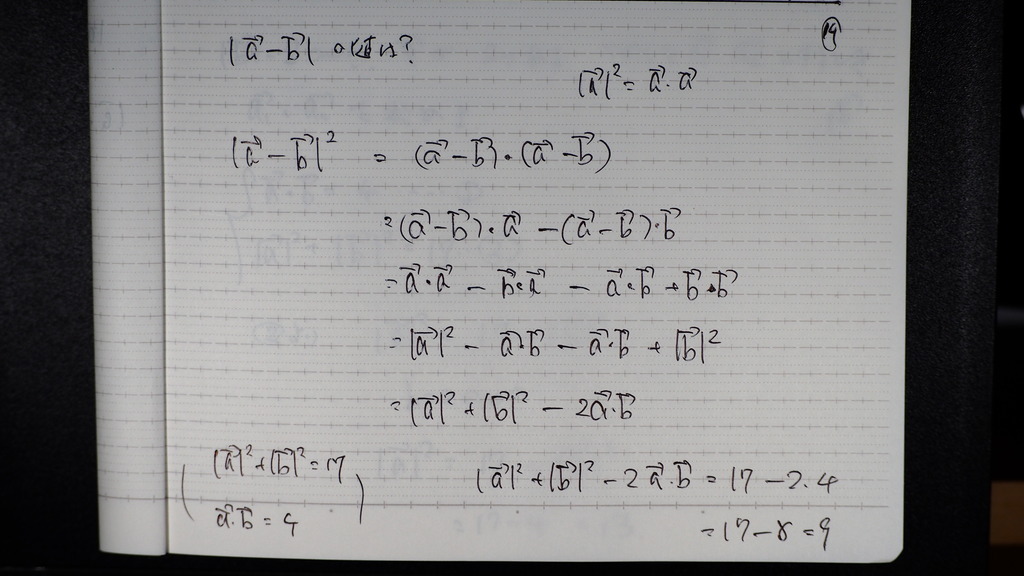 ⑭
|a⃗-b⃗| の大きさは?
|a⃗|² = a⃗・a⃗
|a⃗-b⃗|² = (a⃗-b⃗)・(a⃗-b⃗)
=(a⃗-b⃗)・a⃗-(a⃗-b⃗)・b⃗
=a⃗・a⃗-b⃗・a⃗-a⃗・b⃗+b⃗・b⃗
=|a⃗|²-a⃗・b⃗-a⃗・b⃗+|b⃗|²
=|a⃗|²+|b⃗|²-2a⃗・b⃗
(|a⃗|²+|b⃗|²=17
a⃗・b⃗=4)
|a⃗|²+|b⃗|²-2a⃗・b⃗=17-2・4
=17-8=9